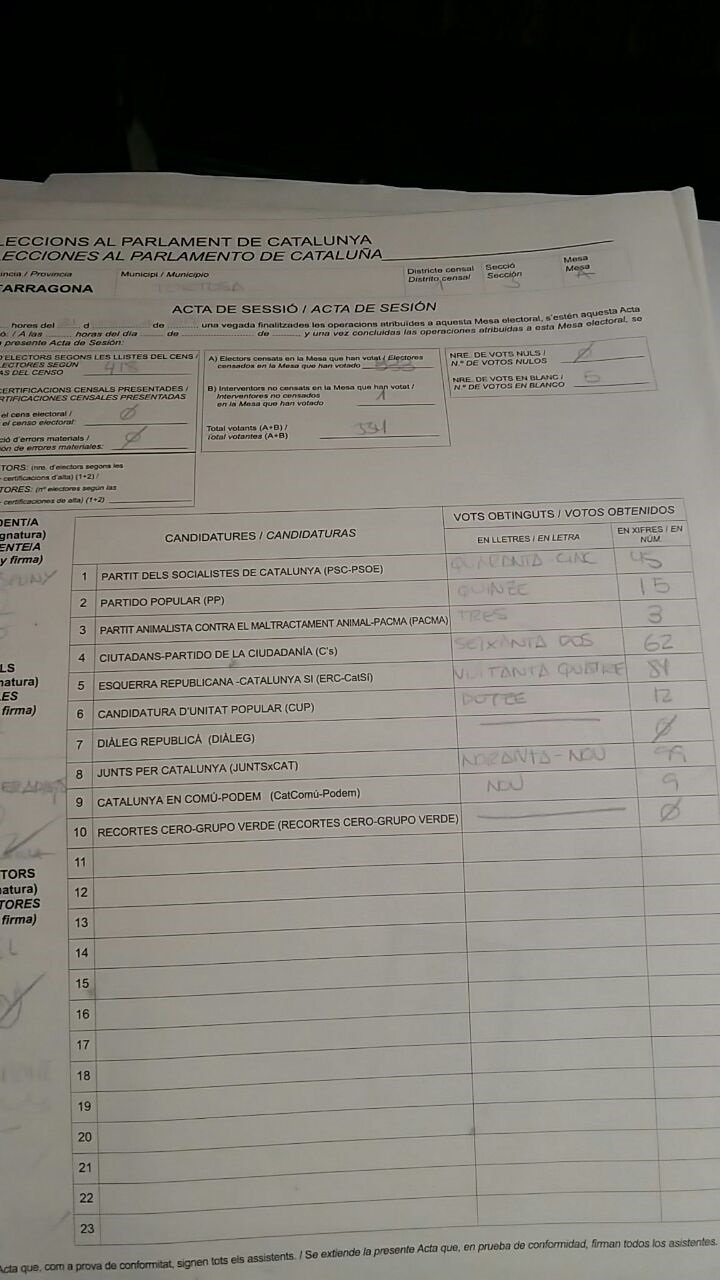 LECCIONS AL PARLAMENT DE CATALUNYA
LECCIONES AL PARLAMENTO DE CATALUÑA
íncia / Provincia
Municipi / Municipio
Districte censal
Distrito censal
Secció
Sección
Mesa
Mesa
TARRAGONA
TORTOSA
1
3
A
ACTA DE SESSIÓ / ACTA DE SESIÓN
hores del 21 d de, una vegada finalitzades les operacions atribuïdes a aquesta Mesa electoral, s'estén aquesta Acta
ó. / A las horas del día de de y una vez concluidas las operaciones atribuidas a esta Mesa electoral, se
presente Acta de Sesión:
D'ELECTORS SEGONS LES LLISTES DEL CENS /
LECTORES SEGÚN
AS DEL CENSO 418
CERTIFICACIONS CENSALS PRESENTADES /
RTIFICACIONES CENSALES PRESENTADAS
el cens electoral /
el censo electoral: Ø
ció d'errors materials /
ión de errores materiales: Ø
TORS: (nre. d'electors segons les
certificacions d'alta) (1+2) /
TORES: (nº electores según las
certificaciones de alta) (1+2)
A) Electors censats en la Mesa que han votat / Electores
censados en la Mesa que han votado 333
B) Interventors no censats en la Mesa que han votat /
Interventores no censados
en la Mesa que han votado 1
Total votants (A+B) /
Total votantes (A+B) 334
NRE. DE VOTS NULS /
N.º DE VOTOS NULOS Ø
NRE. DE VOTS EN BLANC /
N.º DE VOTOS EN BLANCO 5
DENT/A
gnatura)
ENTE/A
y firma)
LS
natura)
LES
firma)
TORS
natura)
TORES
firma)
CANDIDATURES / CANDIDATURAS
VOTS OBTINGUTS / VOTOS OBTENIDOS
EN LLETRES / EN LETRA
EN XIFRES / EN
NÚM.
1 PARTIT DELS SOCIALISTES DE CATALUNYA (PSC-PSOE) QUARANTA-CINC 45
2 PARTIDO POPULAR (PP) QUINZE 15
3 PARTIT ANIMALISTA CONTRA EL MALTRACTAMENT ANIMAL-PACMA (PACMA) TRES 3
4 CIUTADANS-PARTIDO DE LA CIUDADANÍA (C's) SEIXANTA DOS 62
5 ESQUERRA REPUBLICANA -CATALUNYA SI (ERC-CatSí) VUITANTA QUATRE 84
6 CANDIDATURA D'UNITAT POPULAR (CUP) DOTZE 12
7 DIÀLEG REPUBLICÀ (DIÀLEG) Ø
8 JUNTS PER CATALUNYA (JUNTSxCAT) NORANTA-NOU 99
9 CATALUNYA EN COMÚ-PODEM (CatComú-Podem) NOU 9
10 RECORTES CERO-GRUPO VERDE (RECORTES CERO-GRUPO VERDE) Ø
11
12
13
14
15
16
17
18
19
20
21
22
23
Acta que, com a prova de conformitat, signen tots els assistents. / Se extiende la presente Acta que, en prueba de conformidad, firman todos los asistentes.